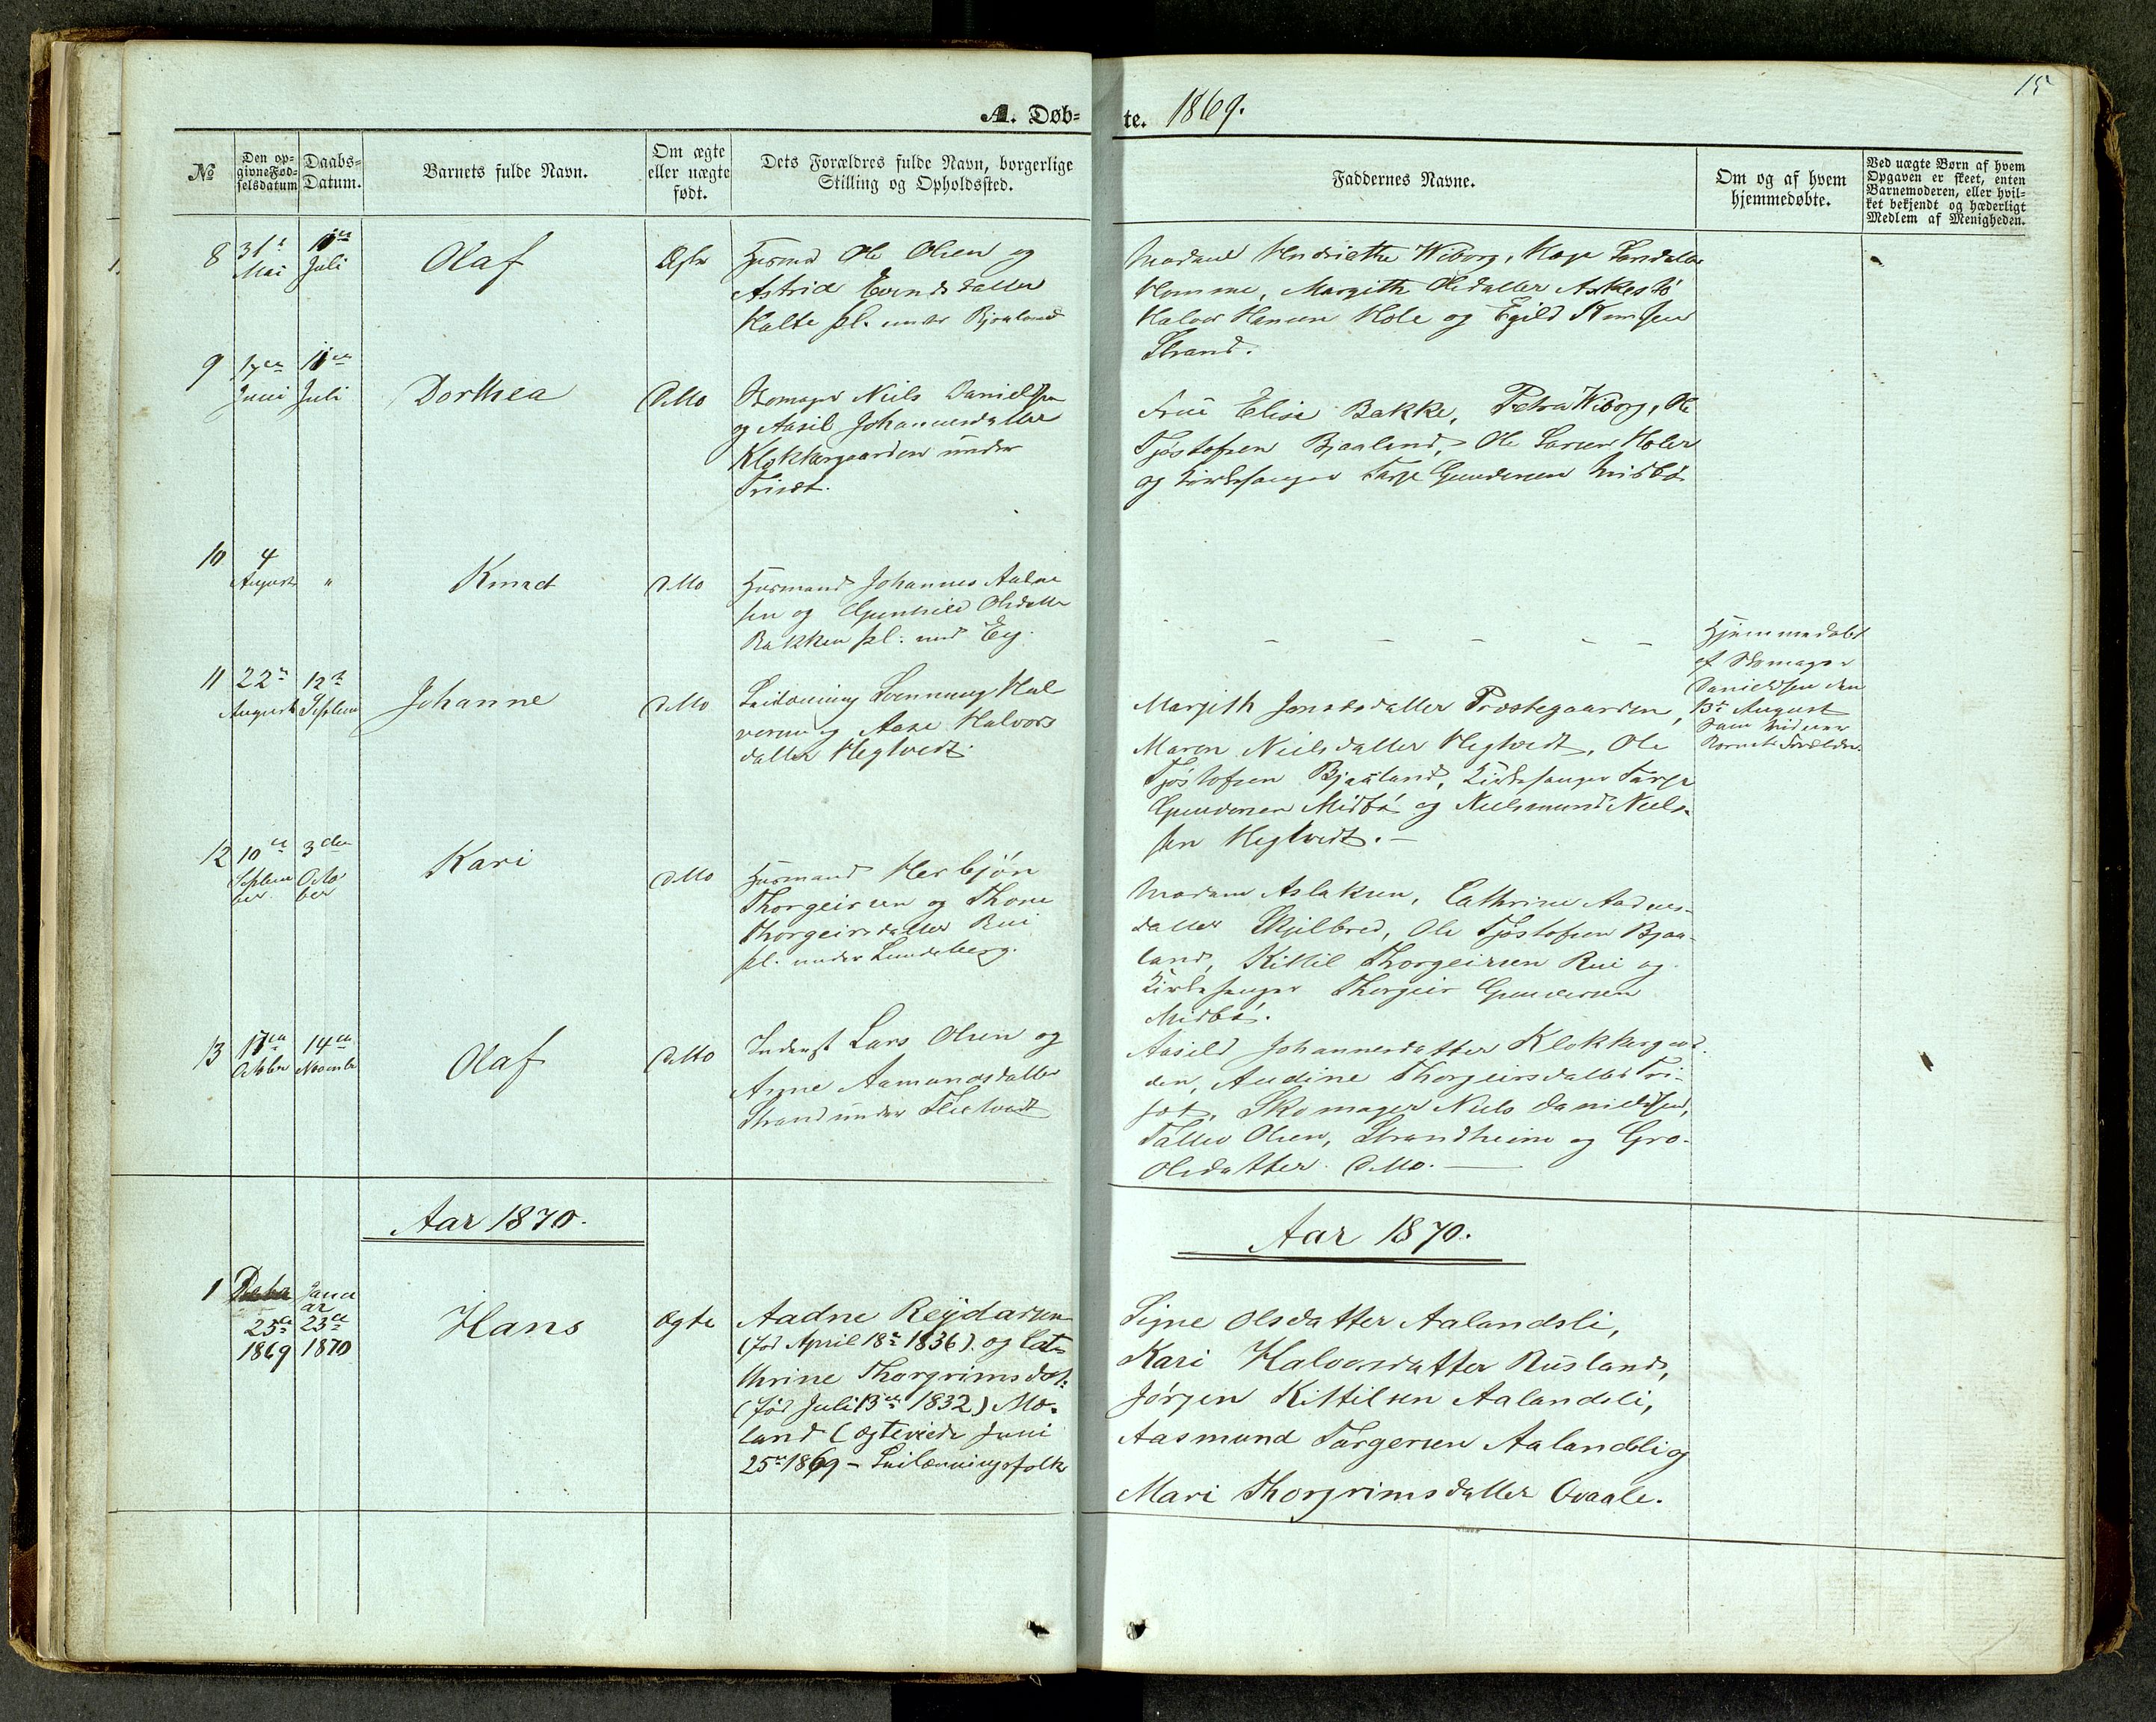 15
A. Døb-
te. 1869.
No
Den op-
givne Fød-
selsdatum
Daabs-
Datum.
Barnets fulde Navn.
Om ægte
eller uægte
født.
Dets Forældres fulde Navn, borgerlige
Stilling og Opholdssted.
Faddernes Navne.
Om og af hvem
hjemmedøbte.
Ved uægte Børn af hvem
Opgaven er skeet, enten
Barnemoderen, eller hvil-
ket bekjendt og hæderligt
Medlem af Menigheden.
8
31te
Mai
Juli
Olaf
Ægte
Ole Olsen og
Astrid
pl. under Bjaaland
Madame Henriette Wiborg,
Homme, Margith Olsdatter
Halvor Hansen Hole og Egild
Strand.
9
17de
Juni
Juli
Dorthea
ditto
Skomager Niels Danielsen
og Aasil Johannesdatter
Klokkergaarden under
Trisæt.
Frue Elise Bakke, Petra Wiborg, Ole
Tjøstofsen Bjaaland, Ole Larsen
og Kirkesanger Tarje Gundersen Midbø
10
4
August
"
Knud
ditto
Husmand Johannes
sen og Gunhild Olsdatter
Bakken pl. und Eig.
- - - - - -
Hjemmedøbt
af Skomager
Danielsen den
13de August
Barnets Forældre.
11
22de
August
12te
Septem
Johanne
ditto
Leilænding Svennung Hal
vorsen og Aase Halvors
datter Hegtvedt.
Margith Jonsdatter Præstegaarden,
Maren Nielsdatter Hegtvedt, Ole
Tjøstofsen Bjaaland, Kirkesanger Tarje
Gundersen Midbø og Nielsmund Niels-
sen Hegtvedt. -
12
10de
Septem
ber
3die
Octo
ber
Kari
ditto
Husmand Herbjøn
Thorgeirsen og Thone
Thorgeirsdatter Rui
pl. under Lundeberg.
Madam Aslaksen, Cathrine Aadnes-
datter Skjelbred, Ole Tjøstofsen Bjaa-
land, Kittil Thorgeirsen Rui og
Kirkesanger Thorgeir Gundersen
Midbø.
13
17de
October
14de
Novembr
Olaf
ditto
Inderst Lars Olsen og
Anne Aamundsdatter
Strand under
Aasild Johannesdatter Klokkergaar-
den, Audine Thorgeirsdatter Tri-
sæt, Skomager Niels Danielsen,
Tallev Olsen, Strandheim og Gro
Olsdatter ditto. -
Aar 1870.
Aar 1870.
1
25de
1869
Janu
ar
23de
1870
Hans
Ægte
Aadne Reijdarsen
(fød April 18de 1836). og Cat-
hrine Thorgrimsdat:
(fød Juli 13de 1832) Mo-
land (ægteviede Juni
25de 1869 - Leilændingsfolk
Signe Olsdatter Aalandsli,
Kari Halvorsdatter Rusland,
Jørgen Kittilsen Aalandsli,
Aasmund Targersen Aalandsli og
Mari Thorgrimsdatter Qvaale.